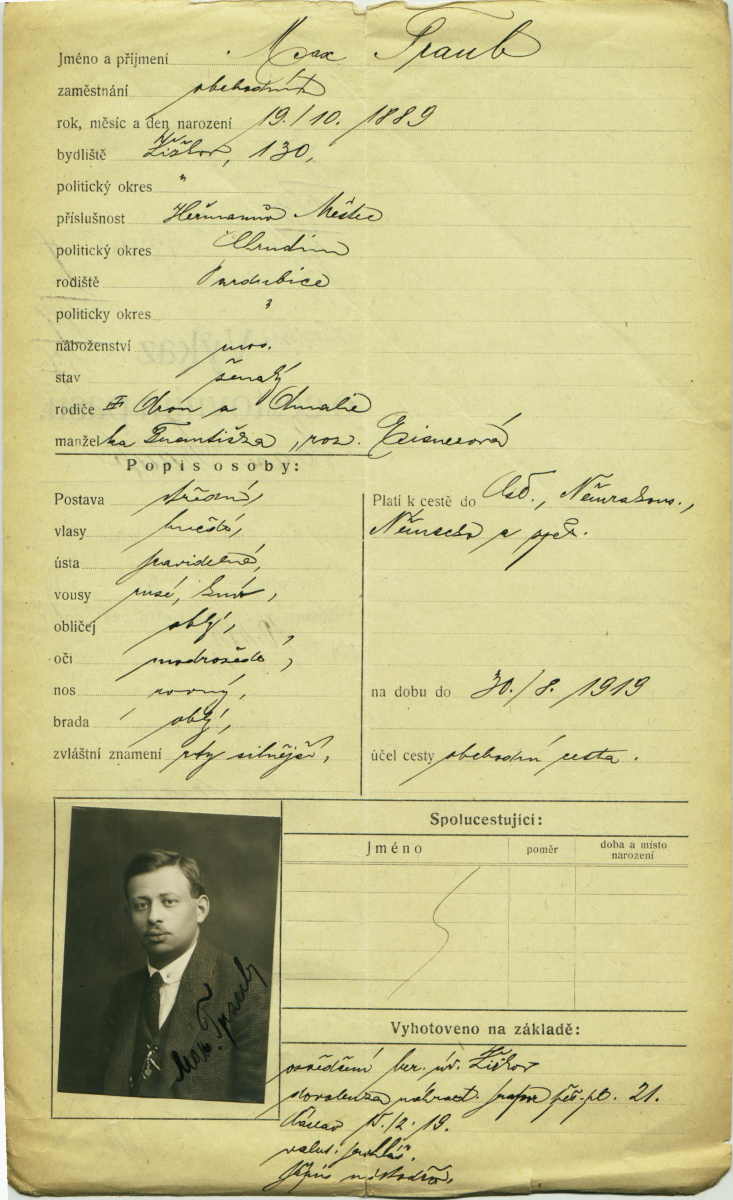 Jméno a příjmení Max Traub
zaměstnání obchodník
rok, měsíc a den narození 19./10. 1889
bydliště Žižkov, 130,
politický okres "
příslušnost Heřmanův Městec
politický okres Chrudim
rodiště Pardubice
politicky okres "
náboženství mos.
stav ženatý
rodiče Aron a Amalie
manželka Františka, roz. Eisnerová
Popis osoby:
Postava střední,
vlasy hnědé,
ústa pravidelné,
vousy rusé, knír,
obličej oblý,
oči modrošedé,
nos rovný,
brada oblý,
zvláštní znamení rty silnější,
Platí k cestě do Něm. Rakous.,
Německa a zpět.
na dobu do 30./8. 1919
účel cesty obchodní cesta.
Max Traub
Spolucestující:
Jméno poměr doba a místo narození
Vyhotoveno na základě:
osvědčení ber. úř. Žižkov
dovolenka náhrad. prapor pěš. pl. 21.
Čáslav 15./2. 19.
valut. prohláš.